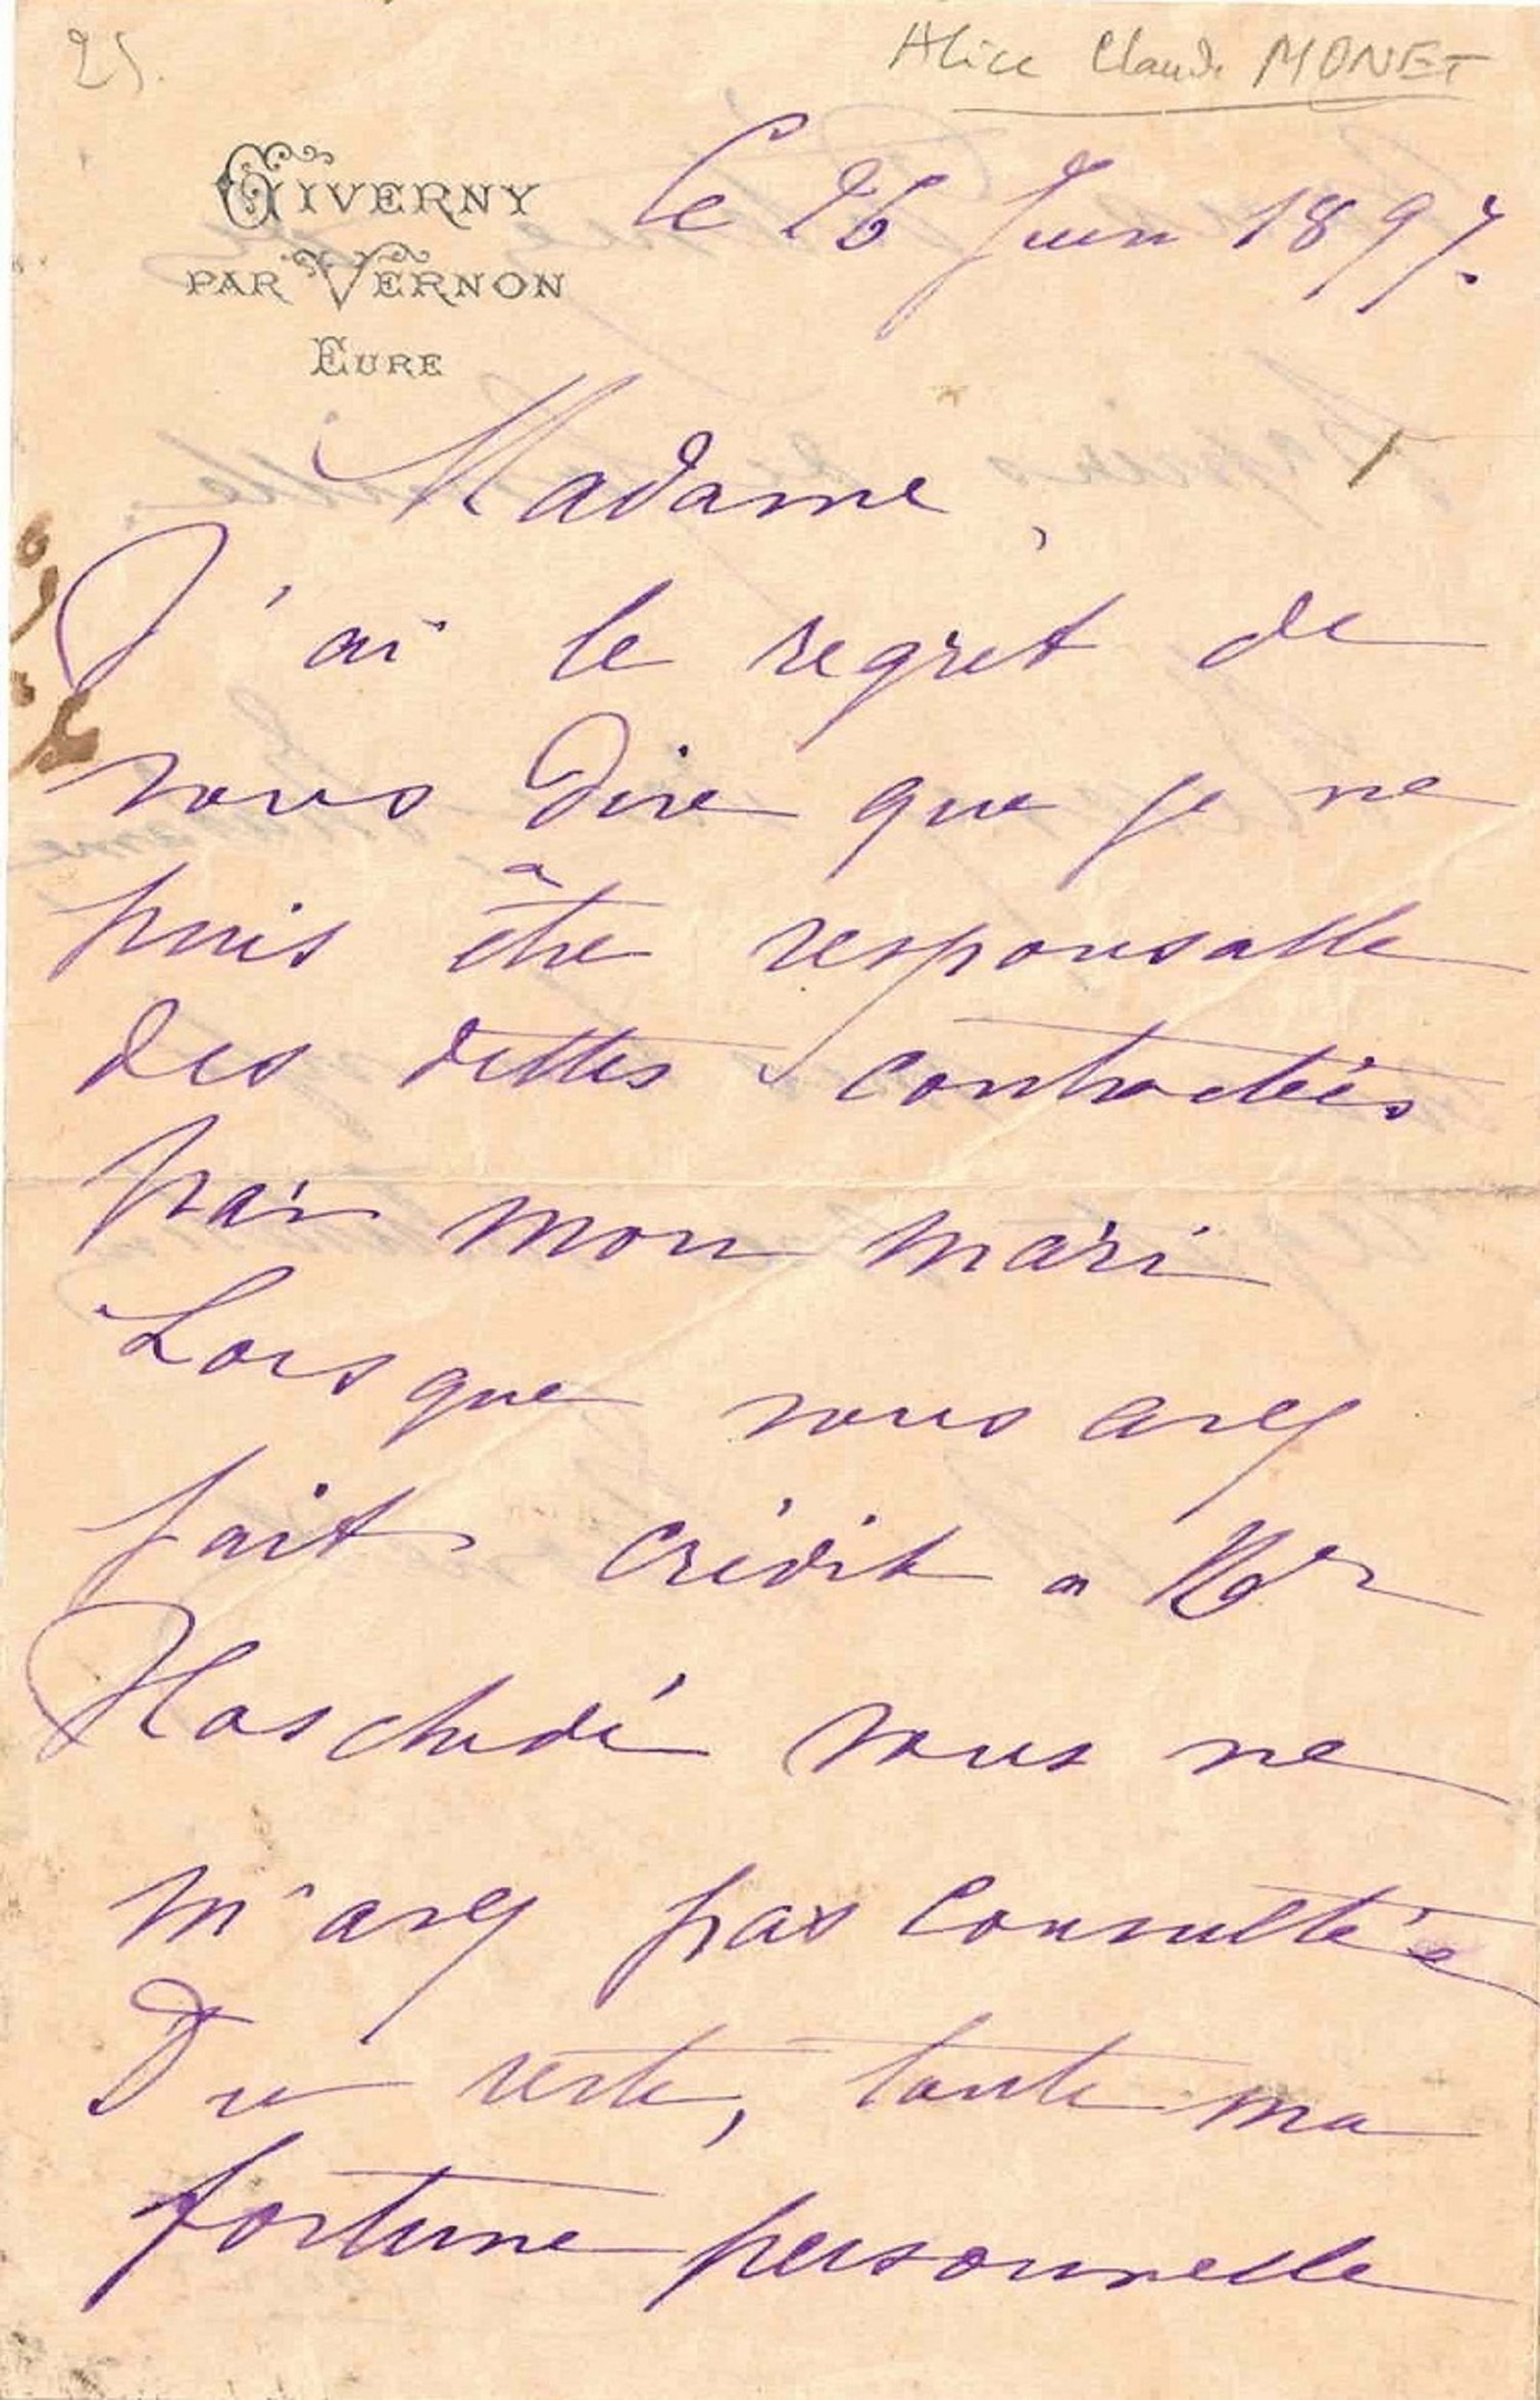 25.
Alice Claude MONET
GIVERNY
PAR VERNON
EURE
le 26 Juin 1897.
Madame,
J'ai le regret de
vous dire que je ne
puis être responsable
des dettes contractées
par mon mari
Lorsque vous avez
fait crédit a Mr
Hoschedé vous ne
m'avez pas consultée
Du reste, toute ma
fortune personnelle